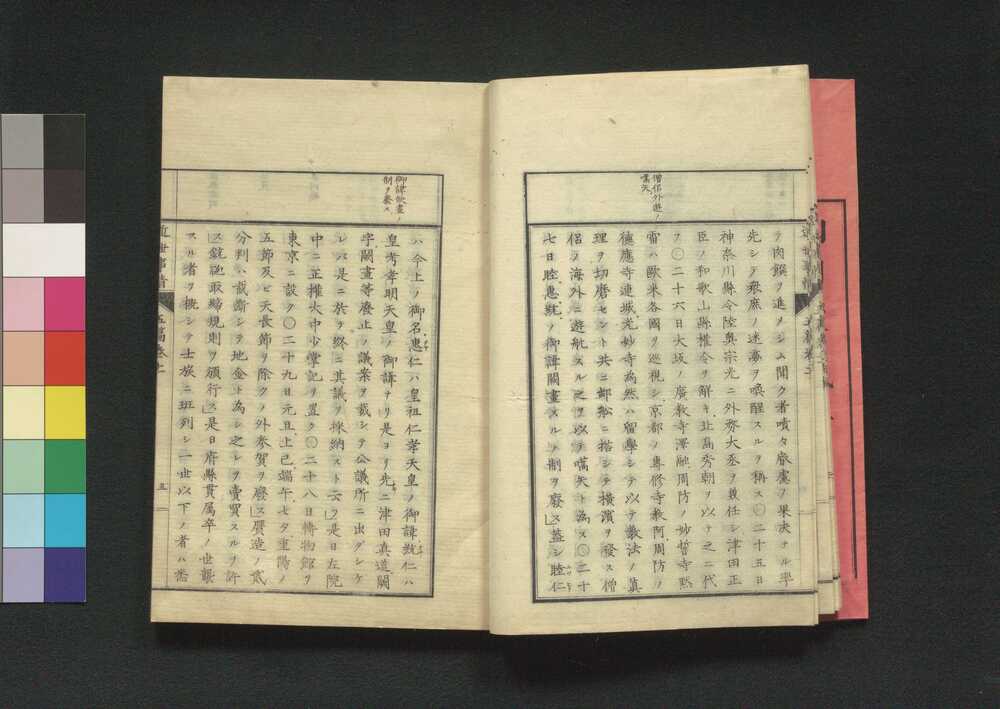 僧侶外遊ノ
嚆矢
ヲ肉饌ヲ進メシム聞ク者嘖々叡慮ノ果決ナル率
先シテ衆庶ノ迷夢ヲ喚醒スルヲ稱ス〇二十五日
神奈川縣令陸奥宗光ニ外務大丞ヲ兼任シ津田正
臣ノ和歌山縣權令ヲ解キ北島秀朝ヲ以テ之ニ代
フ〇二十六日大坂ノ廣教寺澤融周防ノ妙誓寺黙
雷ハ歐米各國ヲ巡視シ京都ノ專修寺教阿周防ノ
德應寺連城光妙寺為然ハ留學シテ以テ教法ノ眞
理ヲ切磨セント共ニ郵舩ニ搭シテ横濱ヲ發ス僧
侶ノ海外ニ遊航スル之ヲ以テ嚆矢ト為ス〇二十
七日睦惠統ノ御諱闕畫スルノ制ヲ廢ス」蓋シ睦仁
御諱欠畫ノ
制ヲ廢ス
ハ今上ノ御名惠仁ハ皇祖仁孝天皇ノ御諱統仁ハ
皇考孝明天皇ノ御諱ナリ是ヨリ先ニ津田真道闕
字闕畫等廢止ノ議案ヲ裁シテ公議所ニ出タシケ
レバ是ニ於テ終ニ其議ヲ採納スト云フ」是日左院
中ニ正權大中少掌記ヲ置ク〇二十八日博物館ヲ
東京ニ設ク〇二十九日元旦上巳端午七タ重陽ノ
五節及ビ天長節ヲ除クノ外参賀ヲ廢ス」贋造ノ貳
分判ハ裁断シテ地金ト為シ之レヲ賣買スルヲ許
ス」銃砲取締規則ヲ頒行ス」是日府縣貫属卒ノ世襲
スル者ヲ概シテ士族ニ班列シ一世以下ノ者ハ悉
近世事情
五篇巻之一
五